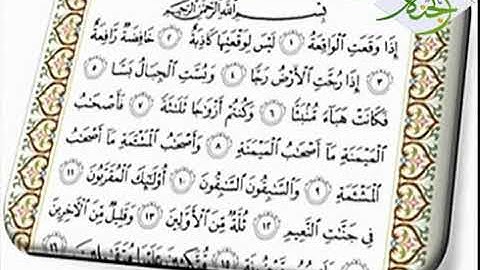 بِسْمِ ٱللَّهِ ٱلرَّحْمَٰنِ ٱلرَّحِيمِ
إِذَا وَقَعَتِ ٱلْوَاقِعَةُ ١ لَيْسَ لِوَقْعَتِهَا كَاذِبَةٌ ٢ خَافِضَةٌ رَّافِعَةٌ
٣ إِذَا رُجَّتِ ٱلْأَرْضُ رَجًّا ٤ وَبُسَّتِ ٱلْجِبَالُ بَسًّا ٥
فَكَانَتْ هَبَآءً مُّنۢبَثًّا ٦ وَكُنتُمْ أَزْوَٰجًا ثَلَٰثَةً ٧ فَأَصْحَٰبُ
ٱلْمَيْمَنَةِ مَآ أَصْحَٰبُ ٱلْمَيْمَنَةِ ٨ وَأَصْحَٰبُ ٱلْمَشْـَٔمَةِ مَآ أَصْحَٰبُ
ٱلْمَشْـَٔمَةِ ٩ وَٱلسَّٰبِقُونَ ٱلسَّٰبِقُونَ ١٠ أُو۟لَٰٓئِكَ ٱلْمُقَرَّبُونَ ١١
فِى جَنَّٰتِ ٱلنَّعِيمِ ١٢ ثُلَّةٌ مِّنَ ٱلْأَوَّلِينَ ١٣ وَقَلِيلٌ مِّنَ ٱلْـَٔاخِرِينَ